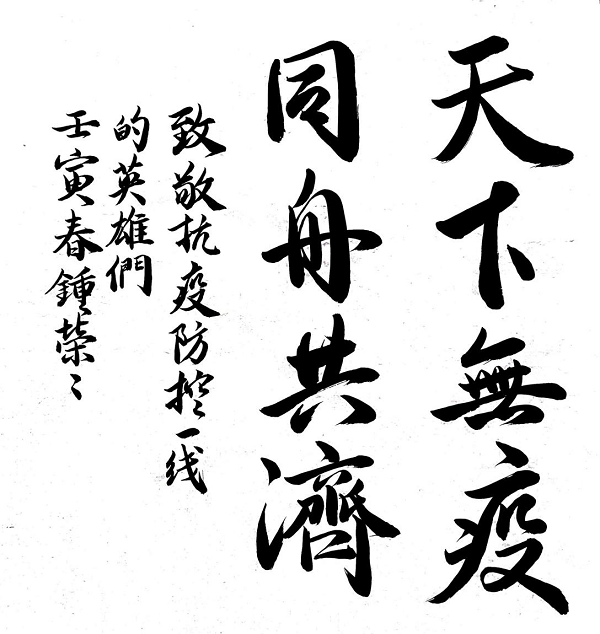 天下無疫
同舟共濟
致敬抗疫防控一线
的英雄們
壬寅春鍾榮〻